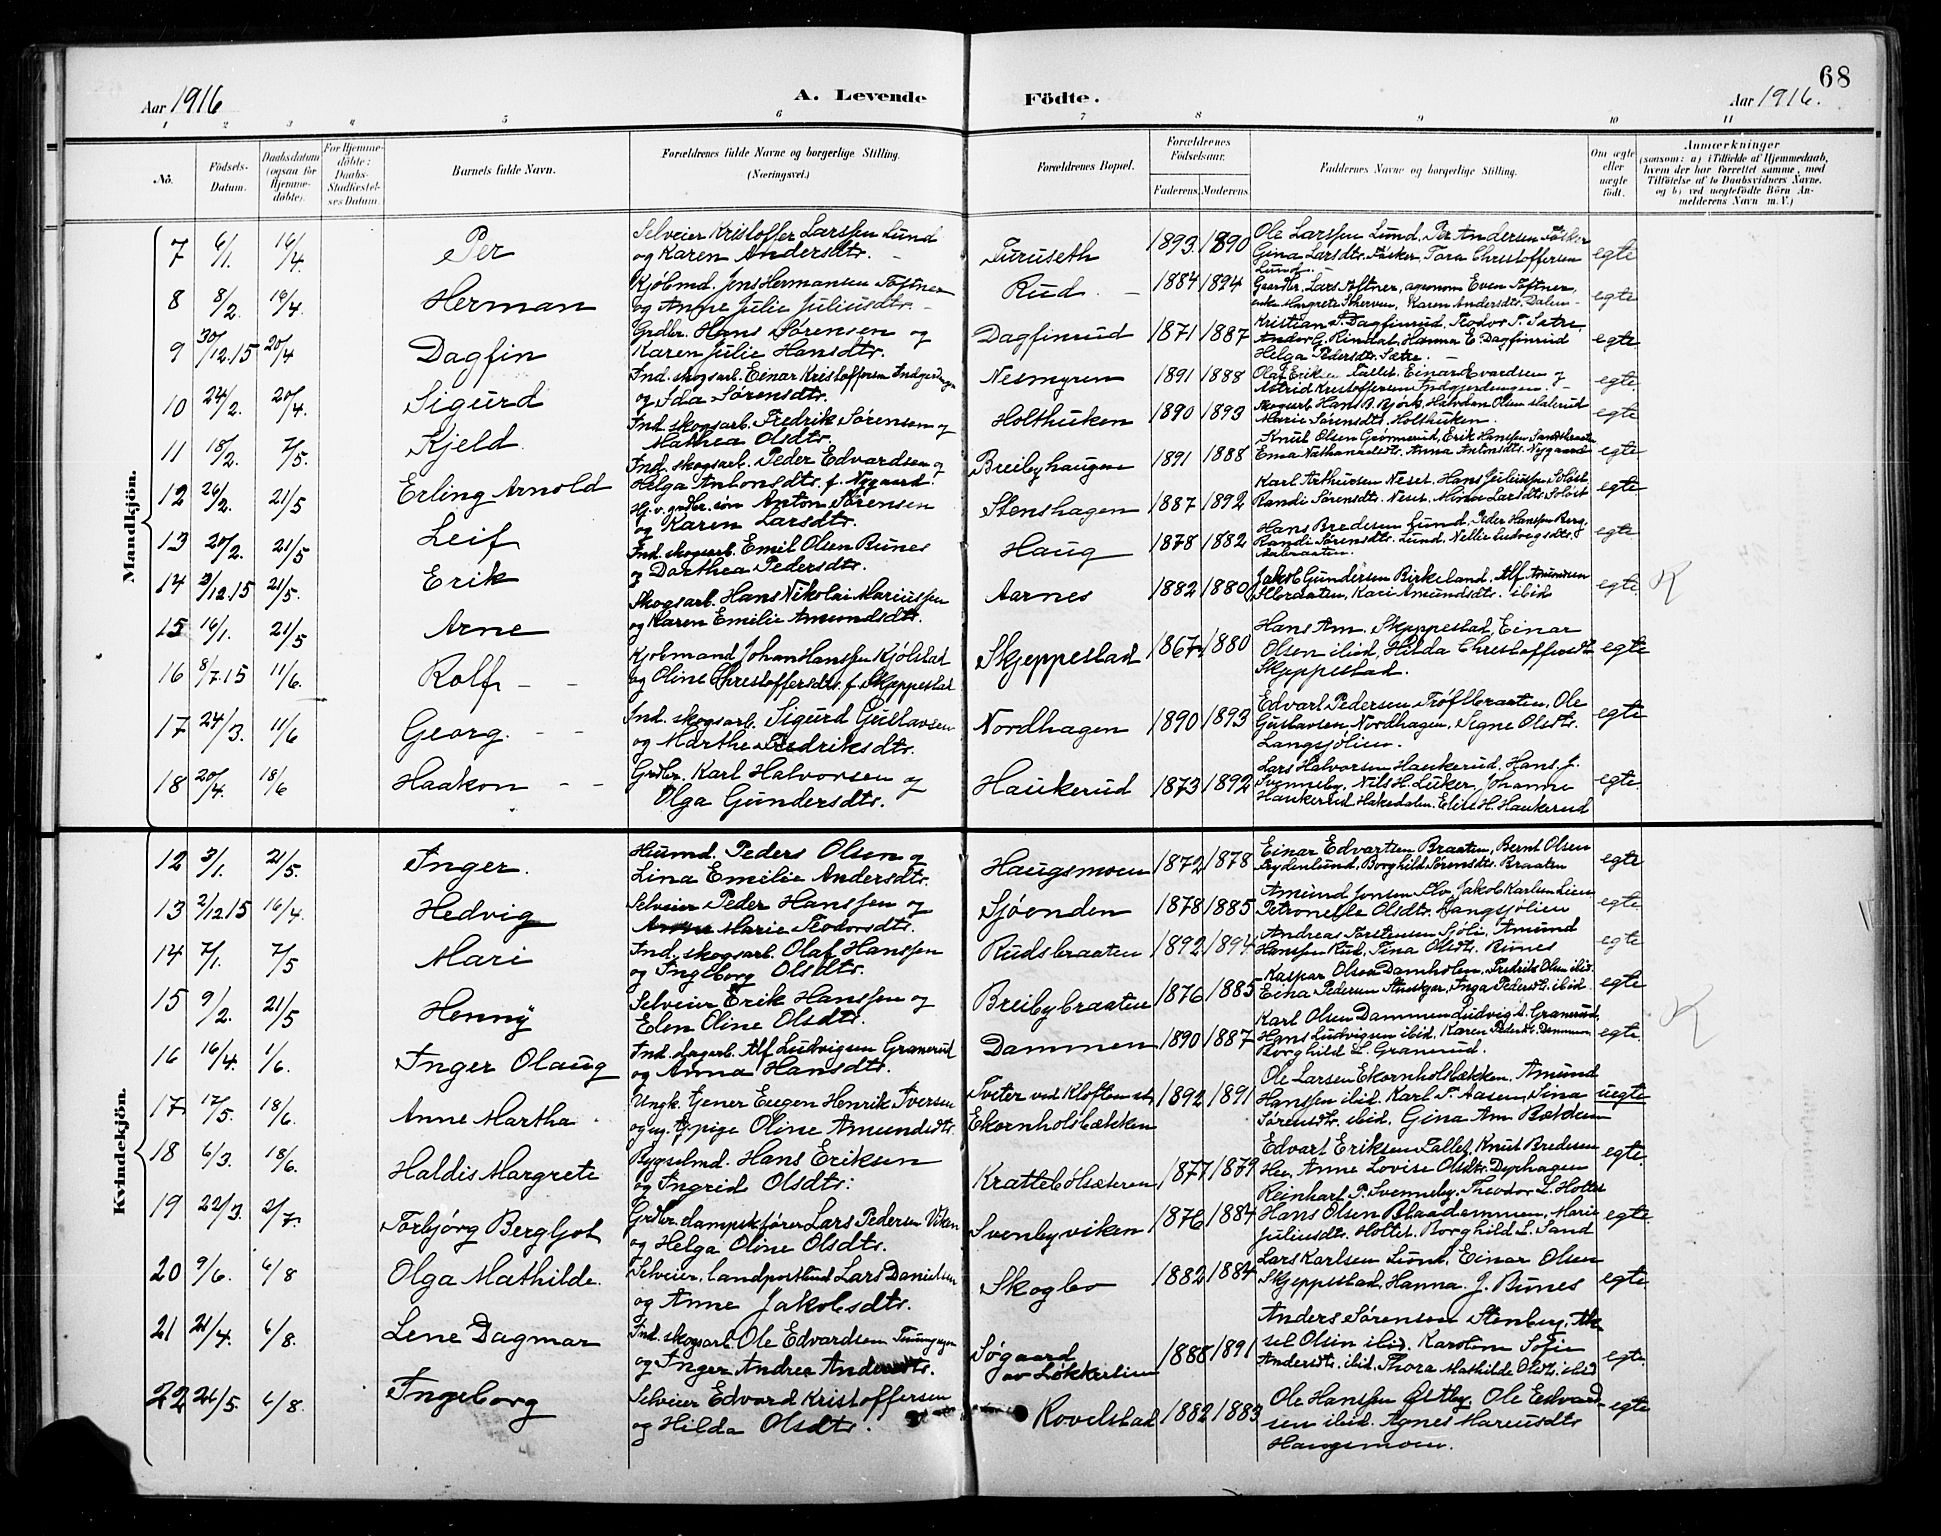 68
Aar 1916
A. Levende
Födte.
Aar 1916.
1 2 3 4 5 6 7 8 9 10 11
No.
Födsels-Datum.
Daabsdatum (ogsaa for Hjemme-døbte).
For Hjemme-döbte: Daabs-Stadfæstel-ses Datum.
Barnets fulde Navn.
Forældrenes fulde Navne og borgerlige Stilling.
(Næringsvei.)
Forældrenes Bopæl.
Forældrenes Födselsaar.
Faderens. Moderens.
Faddernes Navne og borgerlige Stilling.
Om ægte eller uægte født.
Anmærkninger
(saasom: a) i Tilfælde af Hjemmedaab,
hvem der har forrettet samme, med
Tilföielse af to Daabsvidners Navne.
og b) ved uegtefödte Börn An-
melderens Navn m. V.)
Mandkjön.
7 6/1. 16/4. Per Selveier Kristoffer Larssen Lund og Karen Andersdtr. Furuseth 1893 1890 Ole Larssen Lund, Per Andersen Gina Larsdtr. Tora Christoffersen Lund. egte
8 8/2. 16/4. Herman Kjøbmd. Jens Hermansen Toftner og Anne Julie Juliusdtr. Rud 1884 1894 Grdbr. Lars Toftner, agronom Even Toftner, enke Margrete Karen Andersdtr. Dalen egte
9 30/12.15 20/4 Dagfin Grdbr. Hans Sørensen og Karen Julie Hansdtr. Dagfinrud 1871 1887 Kristian Dagfinrud, Teodor Sætre, Hanna E. Dagfinrud Helga Pedersdtr. Sætre. egte
10 24/2. 20/4. Sigurd Ind. skogsarb. Einar Kristoffersen og Ida Sørensdtr. Nesmyren 1891 1888 Olaf Eriksen Fallet. Einar Evardsen og Astrid Kristoffersen egte
11 18/2. 7/5. Kjeld Ind. skogsarb. Fredrik Sørensen og Mathea Olsdtr. Holthuken 1890 1893 Skogsarb. Hans B. Bjørk, Halvdan Olsen Marie Sørensdtr. Holthuken. egte
12 26/2. 21/5 Erling Arnold Ind. skogsarb. Peder Edvardsen og Helga Antonsdtr. f. Nygaard. Breibyhaugen 1891 1888 Knut Olsen Grønnerud, Erik Hanssen Anna Antonsdtr. Nygaard egte
13 20/2. 21/5 Leif grdbr. Anton Sørensen og Karen Larsdtr. Stenshagen 1887 1892 Karl Arthursen Neset, Hans Juliussen Randi Sørensdtr. Neset, Larsdtr. egte
14 3/12.15 21/5. Erik Ind. skogsarb. Emil Olsen Bunes og Dorthea Pedersdtr. Haug 1878 1882 Hans Bredesen Lund, Peder Hanssen Berg, Randi Sørensdtr. Lund, Nellie Ludvigsdtr. egte
15 16/1. 21/5 Arne Skogsarb. Hans Nikolai Mariussen og Karen Emilie Amundsdtr. Aarnes 1882 1880 Jakob Gundersen Birkeland, Alf Amundsen Kari Amundsdtr. ibid egte K
16 8/7.15 11/6. Rolf Kjøbmand Johan Hanssen Kjølstad og Oline Christoffersdtr. f. Skjeppestad Skjeppestad 1867 1880 Hans Am. Skjeppestad, Einar Olsen ibid, Hilda Christoffersdtr Skjeppestad. egte
17 24/3. 11/6 Georg. Ind. skogsarb. Sigurd Gustavsen og Marthe Fredriksdtr. Nordhagen 1890 1893 Edvart Pedersen Ole Gustavsen Nordhagen, Signe Olsdtr. Langsjølien. egte
18 20/4. 18/6 Haakon Grdbr. Karl Halvorsen og Olga Gundersdtr. Haukerud 1873 1892 Lars Halvorsen Haukerud, Hans J. Svenneby, Nils H. Luker, Johanne Haukerud Hakedalen, Elise H. Haukerud egte
Kvindekjön.
12 3/1. 21/5. Inger. Husmd. Peders Olsen og Lina Emilie Andersdtr. Haugsmoen 1872 1878 Einar Edvartsen Braaten, Bernt Olsen Frydenlund, Borghild Sørensdtr. Braaten egte
13 2/12.15 16/4. Hedvig Selveier Peder Hanssen og Marie Teodorsdtr. Sjøenden 1878 1885 Amund Jonsen Jakob Karlsen Lien Petronelle Olsdtr. Langsjølien egte
14 7/1. 7/5 Mari Ind. skogsarb. Olaf Hanssen og Ingeborg Olsdtr. Rudsbraaten 1892 1894 Andreas Torstensen Amund Hanssen Rud, Tina Olsdtr. Bunes egte
15 9/2. 21/5 Henny Selveier Erik Hanssen og Elen Oline Olsdtr. Breibybraaten 1876 1885 Kaspar Olsen Damholen, Fredrik Olsen ibid. Pedersen Inga Pedersdtr. ibid. egte
16 16/4. 1/6. Inger Olaug Ind. dagarb. Alf Ludvigsen Granerud og Anna Hansdtr. Dammen 1890 1887 Karl Olsen Dammen Ludvig L. Granerud, Hans Ludvigsen ibid, Karen Pedersdtr. Dammen Borghild L. Granerud. egte K
17 17/5. 18/6. Anne Martha Ungk. tjener Eugen Henrik Iversen og ug. pige Oline Amundsdtr. Tveter ved Kløften st. Ekornholsbækken 1892 1891 Ole Larsen Ekornholsbækken, Amund Hanssen ibid, Karl T. Aasen, Lina Sørensdtr. ibid, Gina Am. uegte
18 6/3. 18/6. Haldis Margrete Bygselmd. Hans Eriksen og Ingrid Olsdtr. Krattebølsæteren 1877 1879 Edvart Eriksen Fallet, Knut Bredesen Anne Lovise Olsdtr. Dyrhagen egte.
19 22/3. 2/7. Torbjørg Bergljot Grdbr. dampskfører Lars Pedersen Viken og Helga Oline Olsdtr. Svenbyviken 1876 1884 Reinhart P. Svenneby, Theodor L. Hottet Hans Olsen Blaadammen, Marie Juliusdtr. Hottet, Borghild L. Sand egte
20 9/6. 6/8 Olga Mathilde. Selveier, landpostbud Lars Danielsen og Anne Jakobsdtr. Skogbo 1882 1884 Lars Karlsen Lund, Einar Olsen Skjeppestad, Hanna J. Bunes egte
21 21/4. 6/8. Lene Dagmar Ind. skogsarb. Ole Edvardsen og Inger Andrea Andersdtr. Søgaard av Løkkerlien 1888 1891 Anders Sørensen Stenby, Aksel Olsen ibid, Karoline Sofie Andersdtr. ibid, Thora Mathilde Olsdtr. ibid egte
22 26/5. 6/8. Ingeborg Selveier Edvard Kristoffersen og Hilda Olsdtr. Rovelstad 1882 1883 Ole Hanssen Østby, Ole Edvardsen ibid, Agnes Mariusdtr Haugsmoen. egte